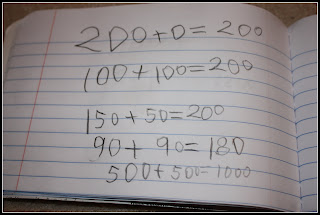 200+0=200
100+100=200
150+50=200
90+90=180
500+500=1000